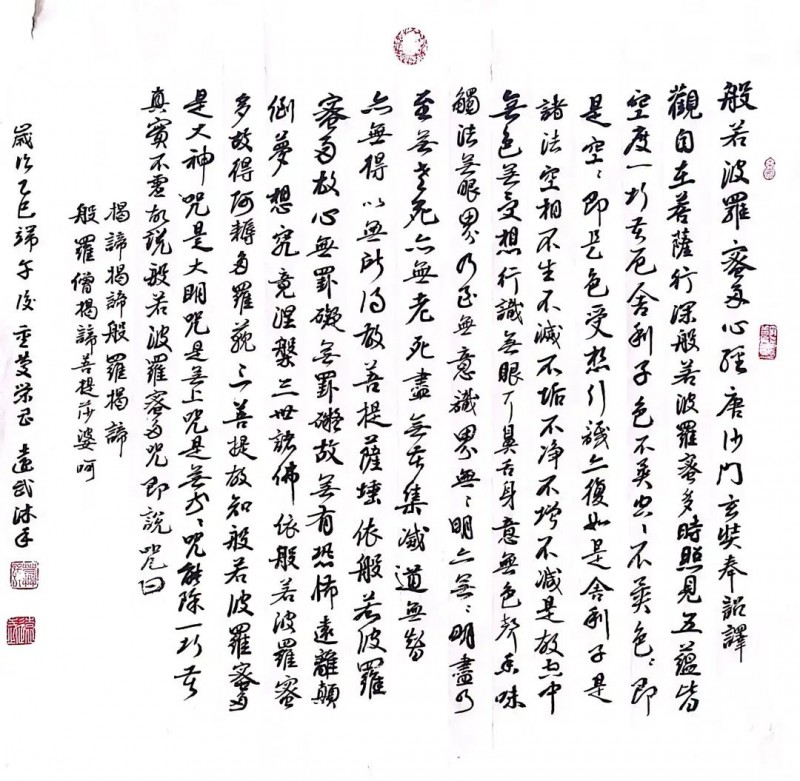 般若波羅蜜多心經唐沙門玄奘奉詔譯
觀自在菩薩行深般若波羅蜜多時照見五蘊皆
空度一切苦厄舍利子色不異空、不異色、即
是空、即是色受想行識亦復如是舍利子是
諸法空相不生不滅不垢不净不增不減是故空中
無色無受想行識無眼耳鼻舌身意無色聲香味
觸法無眼界乃至無意識界無、明亦無、明盡乃
至無老死亦無老死盡無苦集滅道無智
亦無得以無所得故菩提薩埵依般若波羅
蜜多故心無罣礙無罣礙故無有恐怖遠離顛
倒夢想究竟涅槃三世諸佛依般若波羅蜜
多故得阿耨多羅藐三菩提故知般若波羅蜜多
是大神咒是大明咒是無上咒是無等、咒能除一切苦
真實不虛故説般若波羅蜜多咒即説咒曰
揭諦揭諦般羅揭諦
般羅僧揭諦菩提莎婆呵
歲次乙巳端午後重慶榮昌 遠武沐手